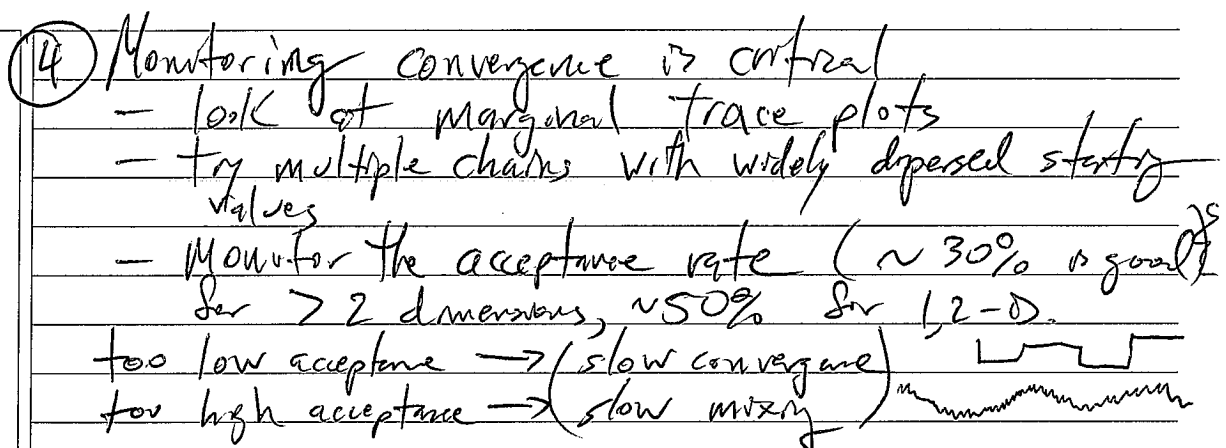 ④ Monitoring convergence is critical
- look at marginal trace plots
- try multiple chains with widely dispersed starting
values
- Monitor the acceptance rate (~30% is good
for >2 dimensions, ~50% for 1,2-D.
too low acceptance → (slow convergence)
too high acceptance → (slow mixing)